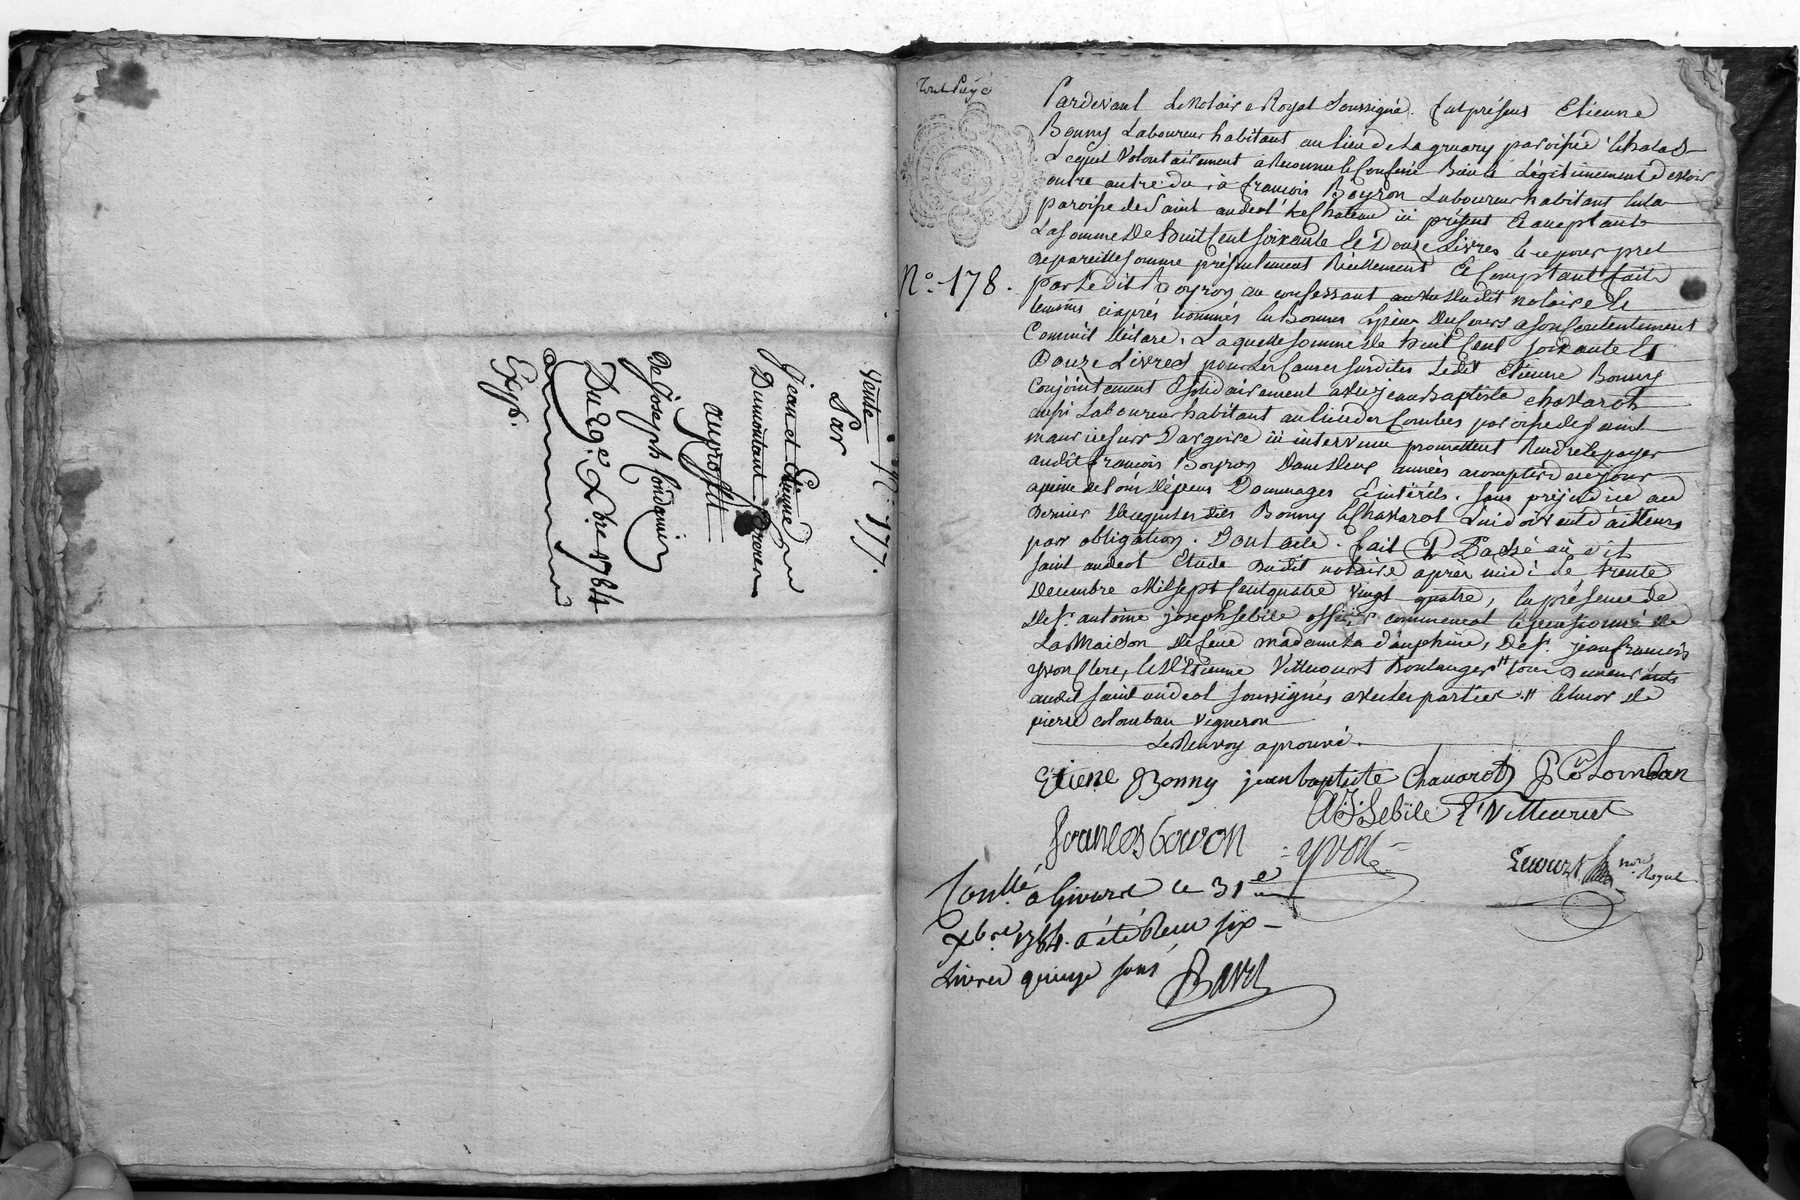 Vente N.° 177.
Par
Jean et Etienne
Dumontant freres
au profit
De Joseph Condamin
Du 29.e Xbre 1784
Exp.
Tout Payé
N.° 178.
Pardevant Le Notaire Royal Soussigné. fut présent Etienne
Bonny Laboureur habitant au lieu de La gruary paroisse de
Lequel Volontairement a Reconnu & Confessé Bien & Légitimement devoir
outre autre du, à françois Boyron Laboureur habitant en la
paroisse de Saint andeol le Chateau ici présent & acceptant
La somme De huit Cent soixante & Douze Livres & ce pour pret
de pareille somme présentement Réellement & Comptant fait
par Ledit Boyron au confessant au Vu dudit notaire &
temoins ciaprés nommés en Bonnes Espèces Du Cours a son Contentement
Comm'il déclare. Laquelle somme de huit Cent soixante &
Douze Livres pour Les Causes susdites Ledit Etienne Bonny
Conjointement & solidairement avec jean Baptiste Chavarot
aussi Laboureur habitant au lieu des Combes paroisse de saint
maurice sur Dargoire ici intervenu promettent Rendre & payer
audit françois Boyron Dans deux années a compter de ce jour
a peine de tous dépens Dommages & intérêts. sans préjudice au
dernier de ce que lesdits Bonny & Chavarot Lui doivent d'ailleurs
par obligation. Dont acte. fait & Passé au dit
saint andeol Etude dudit notaire après midi Le trente
Decembre Mil sept Cent quatre Vingt quatre, en présence de
de s.r antoine joseph Sebile officier commensal & pensionné de
La Maison de feue madame La d'auphine, de s.r jean francois
yvon Clerc, & d'Etienne Villecourt Boulanger # tous demeurants
audit saint andeol soussignés avec les parties. # & encor de
pierre colomban Vigneron
Le Renvoy aprouvé.
Etiene Bonny jean baptiste Chavarot P Colomban
A. J. Sebile E Villecourt
francois boiron yvon
not.re Royal
Con.llé à Givors Le 31e
Xbre 1784. a été Reçu six
Livres quinze sous